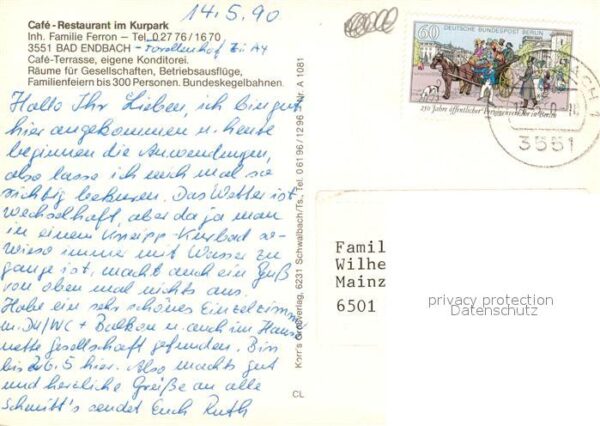 14.5.90
Café-Restaurant im Kurpark
Inh. Familie Ferron - Tel. 0 27 76 / 16 70
3551 BAD ENDBACH - Forellenhof Zi A4
Café-Terrasse, eigene Konditorei.
Räume für Gesellschaften, Betriebsausflüge,
Familienfeiern bis 300 Personen. Bundeskegelbahnen.
Hallo Ihr Lieben, ich bin gut
hier angekommen u. heute
beginnen die Anwendungen,
also lasse ich mich mal so
richtig bekuren. Das Wetter ist
wechselhaft, aber da ja man
in einem Kneipp-Kurbad so-
wieso immer mit Wasser zu
gange ist, macht auch ein Guß
von oben mal nichts aus.
Habe ein sehr schönes Einzelzimmer
m. Du/WC + Balkon u. auch im Hause
nette Gesellschaft gefunden. Bin
bis 26.5 hier. Also machts gut
und herzliche Grüße an alle
Schmitt's sendet Euch Ruth
Korr's Großverlag, 6231 Schwalbach/Ts., Tel. 0 61 96 / 12 96 Nr. A 1081
CL
60
DEUTSCHE BUNDESPOST BERLIN
250 Jahre öffentlicher Personenverkehr in Berlin
3551
Famil
Wilhe
Mainz
6501
privacy protection
Datenschutz